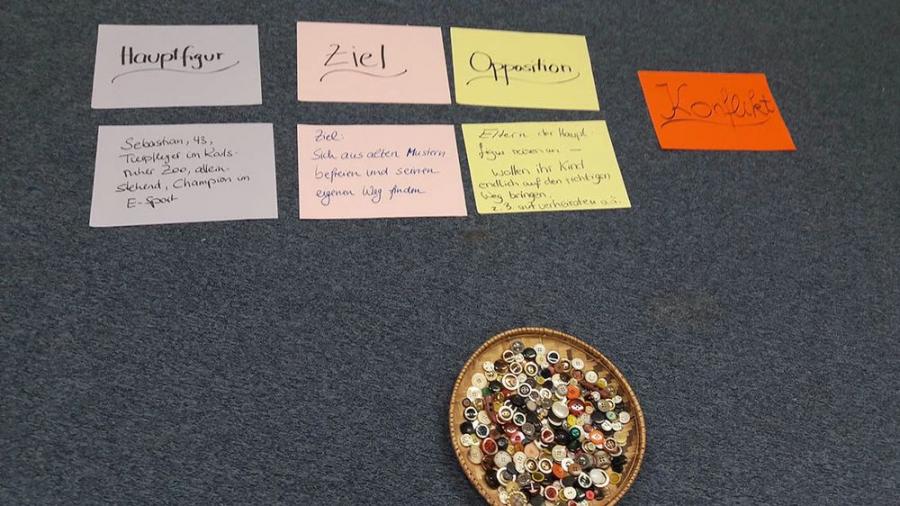 Hauptfigur
Ziel
Opposition
Konflikt
Sebastian, 43,
Tierpfleger im Karls-
ruher Zoo, allein-
stehend, Champion im
E-Sport
Ziel:
Sich aus alten Mustern
befreien und seinen
eigenen Weg finden
Eltern der Haupt-
figur reisen an –
wollen ihr Kind
endlich auf den richtigen
Weg bringen
z.B. verheiraten o.ä.